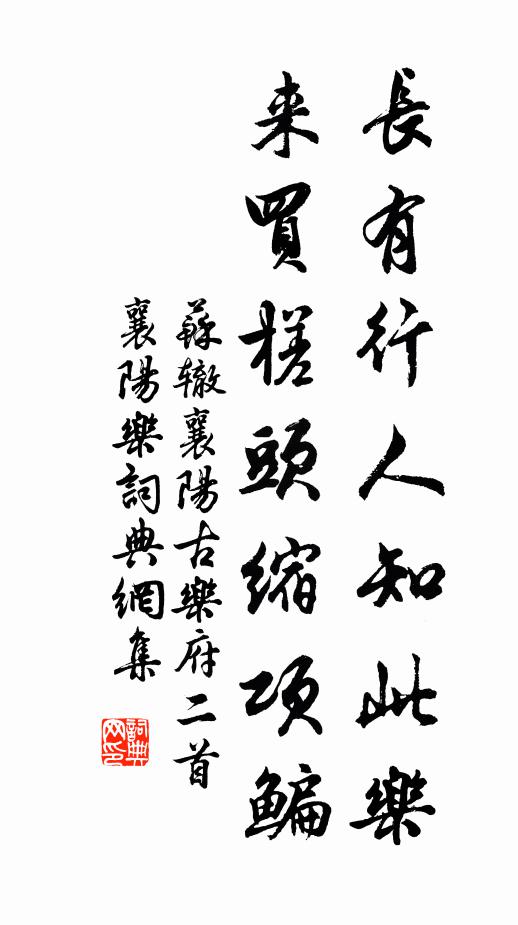 長有行人知此樂
来買槎頭縮項鳊
蘇辙襄陽古樂府二首
襄陽樂詞典網集
詞典
网印